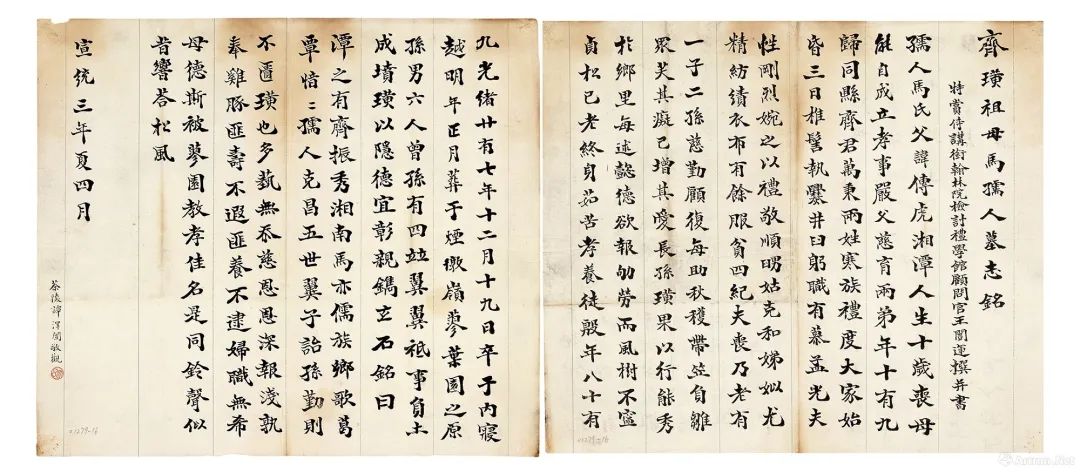 齊璜祖母馬孺人墓志銘
特賞侍講銜翰林院檢討禮學館顧問官王闓運撰并書
孺人馬氏父諱傳虎湘潭人生十歲喪母
能自成立孝事嚴父慈育兩弟年十有九
歸同縣齊君萬秉兩姓寒族禮度大家始
昏三日椎髻執爨井臼躬職有慕孟光夫
性剛烈婉之以禮敬順明姑克和娣姒尤
精紡績衣布有餘服貧四紀夫喪乃老有
一子二孫慈勤顧復每助秋穫帶笠負雛
眾笑其癡己增其愛長孫璜果以行能秀
於鄉里每述懿德欲報劬勞而風樹不寧
貞松已老終身茹苦孝養徒殷年八十有
九光緒廿有七年十二月十九日卒于內寢
越明年正月葬于煙墩嶺蓼葉園之原
孫男六人曾孫有四竝翼翼祇事負土
成墳璜以隱德宜彰親鐫立石銘曰
潭之有齊振秀湘南馬亦儒族鄉歌葛
覃愔〻孺人克昌五世翼子詒孫勤則
不匱璜也多藝無忝慈恩恩深報淺孰
奉雞豚匪壽不遐匪養不逮婦職無希
母德斯被蓼園教孝佳名是同鈴聲似
昔響荅松風
宣統三年夏四月
茶陵譚澤闓敬觀
Artron.Net